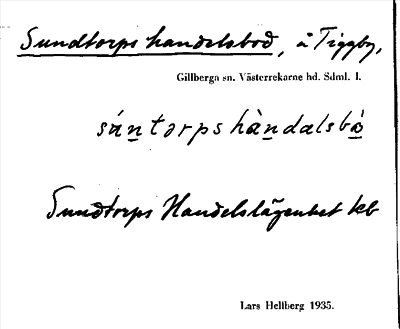 Sundtorps handelsbod, å Tiggby,
Gillberga sn. Västerrekarne hd. Sdml. l.
sántorpshàndalsbå̀
Sundtorps Handelslägenhet kb
Lars Hellberg 1935.